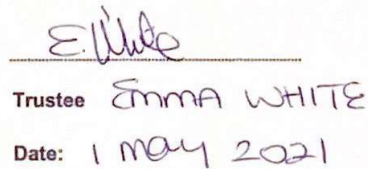 E. White
Trustee EMMA WHITE
Date: 1 May 2021